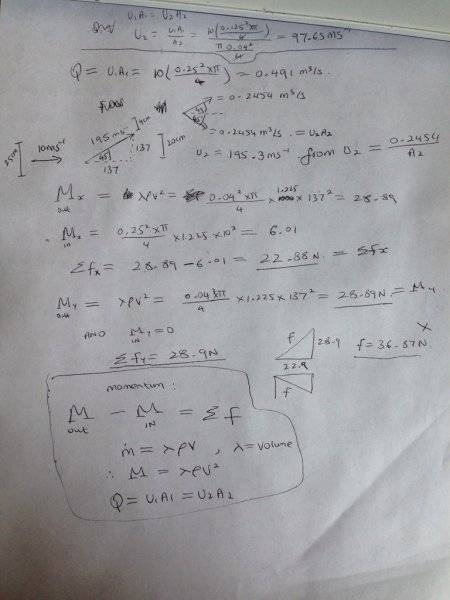 U₁A₁ = U₂A₂
U₂ = U₁A₁/A₂ = 10(0.125²×π/4)/(π 0.04²/4) = 97.65 ms⁻¹
Q = U₁A₁ = 10(0.25²×π/4) = 0.491 m³/s.
45 = 0.2454 m³/s
25cm 10ms⁻¹ 195 ms⁻¹ 4cm 45 137 137 20cm
45 = 0.2454 m³/s. = U₂A₂
U₂ = 195.3ms⁻¹ from U₂ = 0.2454/A₂
Mₓ out = λρv² = 0.04²×π/4 × 1.225 × 137² = 28.89
Mₓ in = 0.25²×π/4 × 1.225 × 10² = 6.01
Σfx = 28.89 - 6.01 = 22.88 N. = Σfx
My out = λρv² = 0.04²π/4 × 1.225 × 137² = 28.89N = My
AND My IN = 0
Σfy = 28.9N
f 28.9 22.9 f = 36.87N. X
f
momentum:
M out - M IN = Σf
ṁ = λρv , λ = volume
∴ M = λρv²
Q = U₁A₁ = U₂A₂